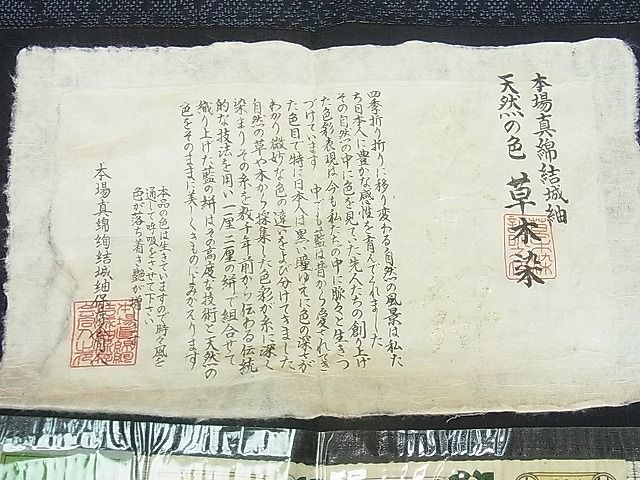 本場真綿結城紬
天然の色 草木染
四季折り折りに移り変わる自然の風景は私た
ち日本人に豊かな感性を育んでくれました
その自然の中に色を見ていた先人たちの創り上げ
た色彩表現は今も私たちの中に脈々と生きつ
づけています 中でも藍は昔から愛されてき
た色目で特に日本人は黒い瞳ゆえに色の深さが
わかり微妙な色の違いをよび分けてきました
自然の草や木から採集した色彩が糸に深く
染まりその糸を数千年前から伝わる伝統
的な技法を用い一厘二厘の絣で組合せて
織り上げた藍の絣はその高度な技術と天然の
色をそのままに美しくきものによみがえります
本品の色は生きていますので時々風を
通して呼吸をさせて下さい
色が落ち着き艶が増
本場真綿絢結城紬保存会